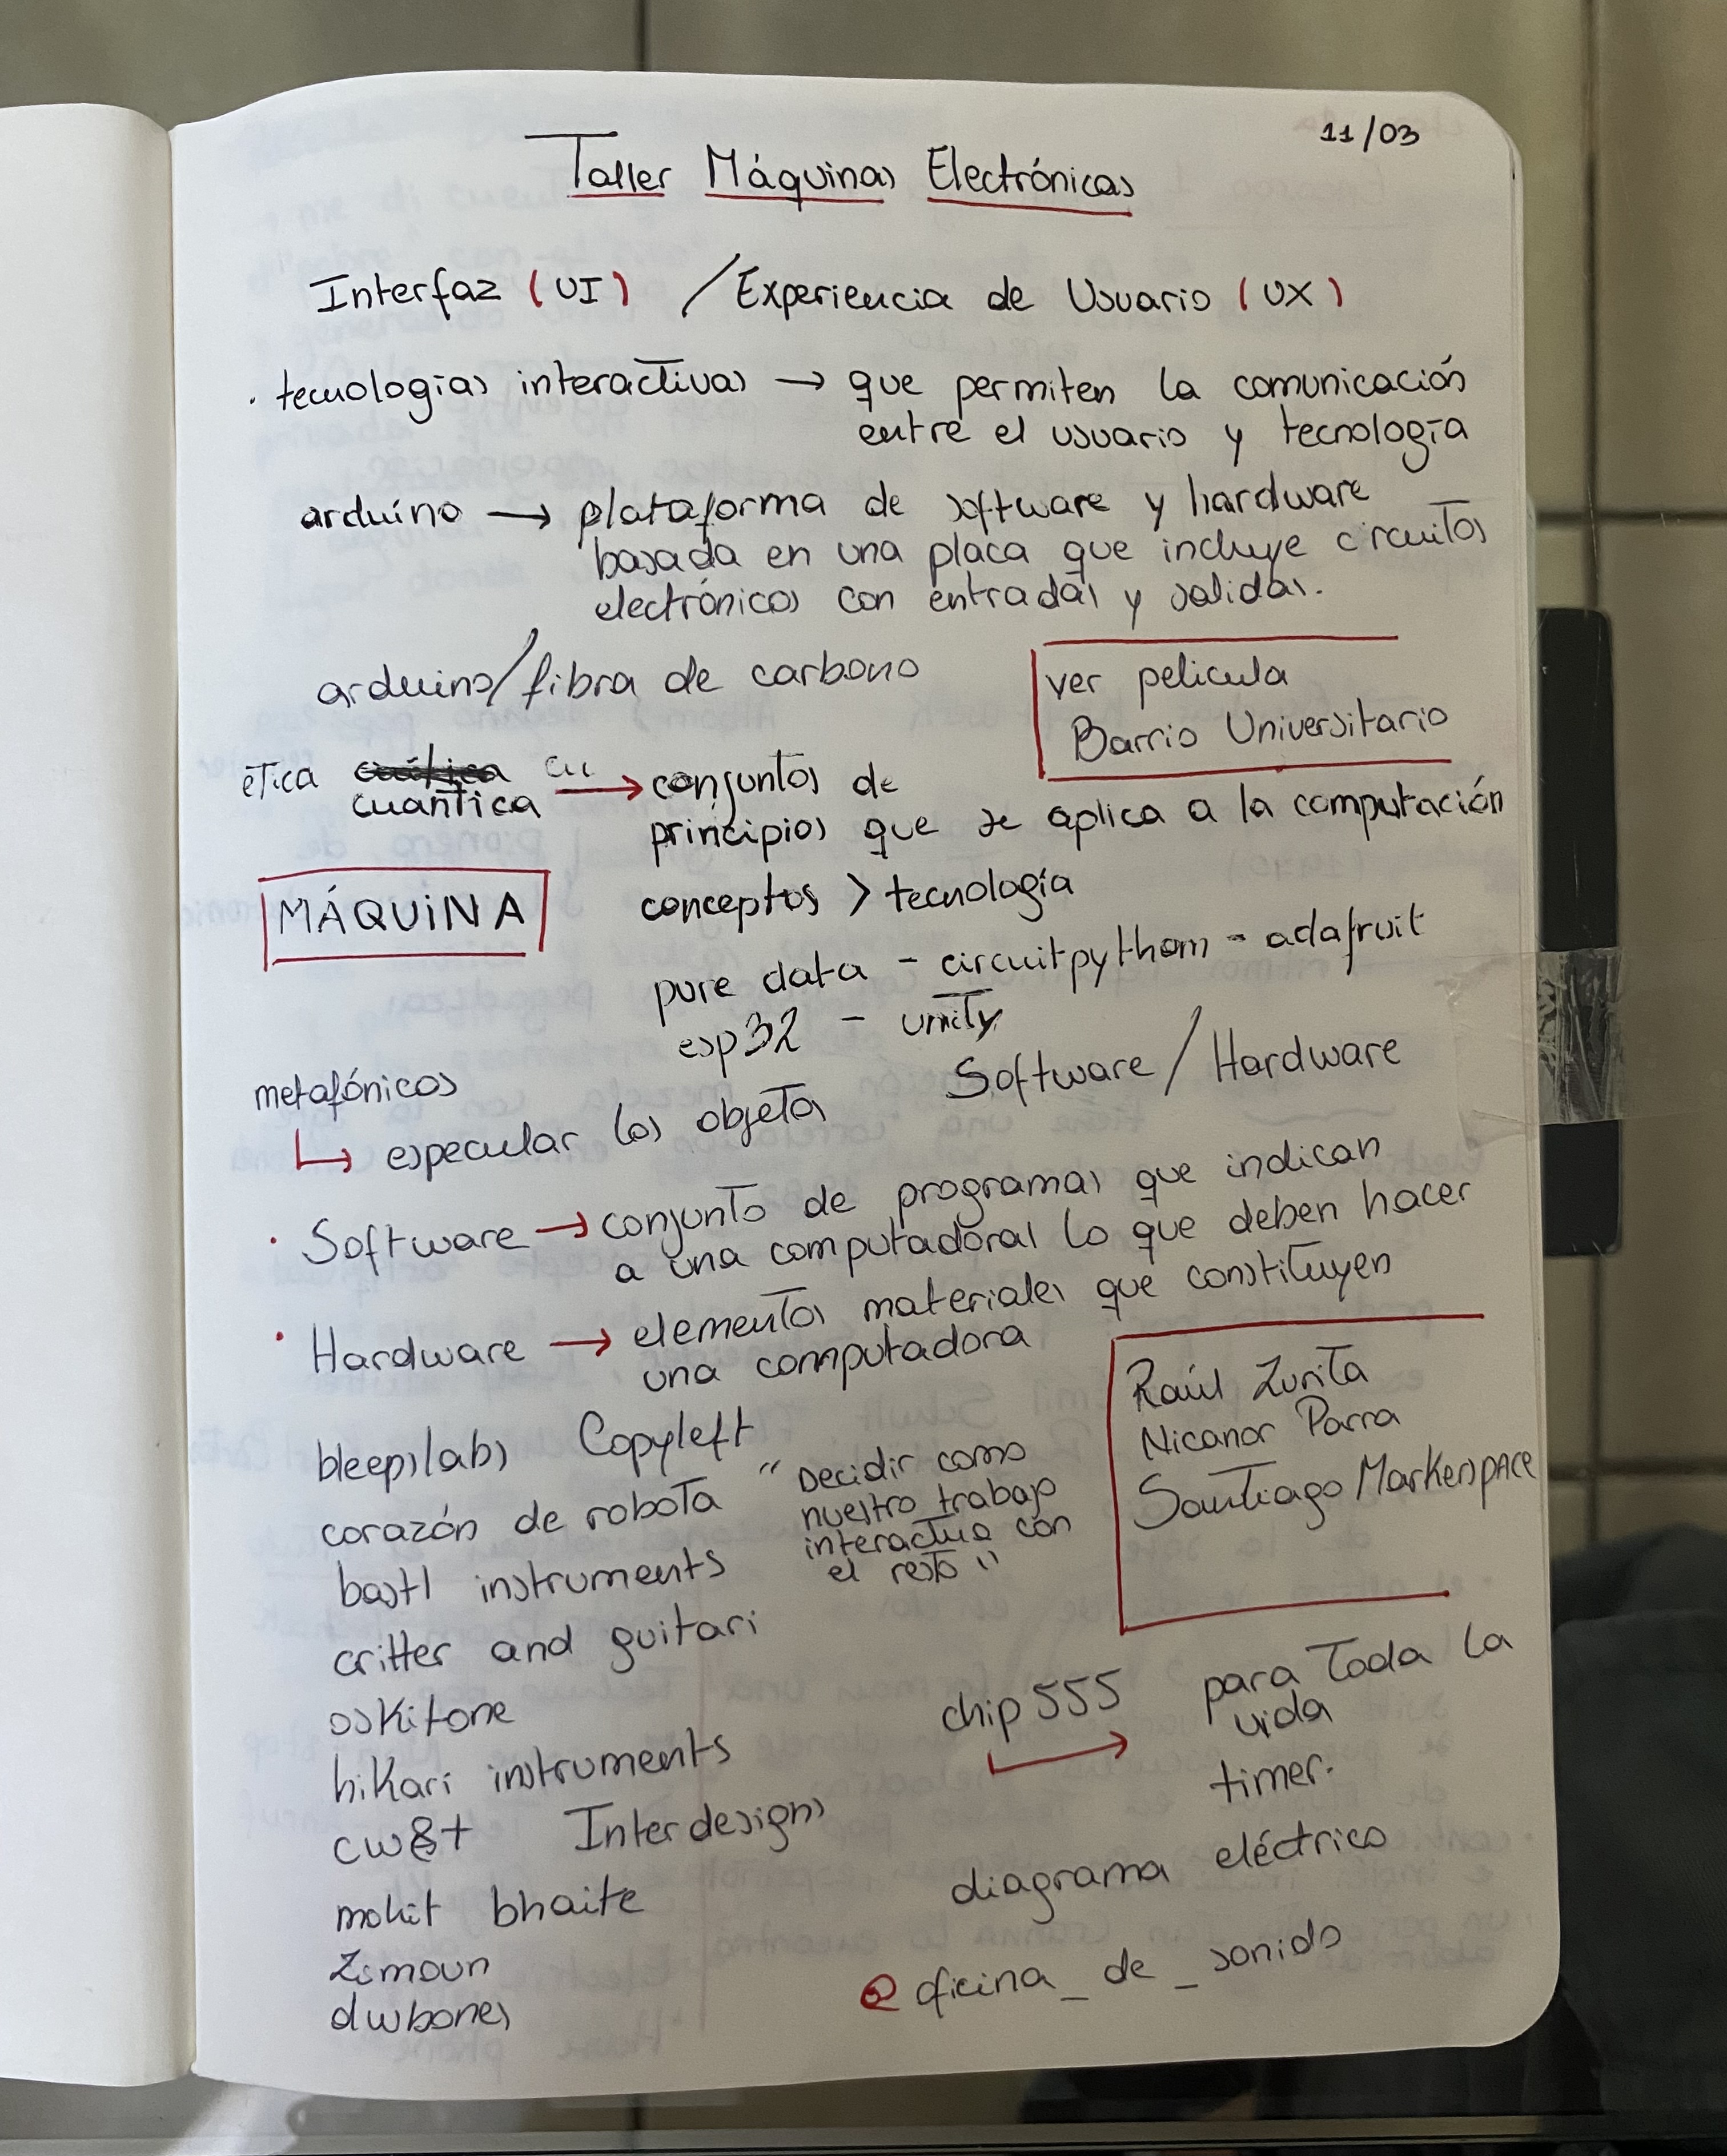 11/03
Taller Máquinas Electrónicas
Interfaz (UI) / Experiencia de Usuario (UX)
· tecnologías interactivas → que permiten la comunicación
entre el usuario y tecnología
arduino → plataforma de software y hardware
basada en una placa que incluye circuitos
electrónicos con entradas y salidas.
arduino/fibra de carbono
ver pelicula
Barrio Universitario
ética
cuántica → conjuntos de
principios que se aplica a la computación
MÁQUINA
conceptos > tecnología
pure data - circuitpythom - adafruit
esp32 - unity
Software / Hardware
metafónicos
↳ especular los objeto
· Software → conjunto de programas que indican
a una computadoral lo que deben hacer
· Hardware → elementos materiales que constituyen
una computadora
Raúl Zurita
Nicanor Parra
Santiago MarkerspAce
bleepslabs Copyleft
corazón de robota
" Decidir como
nuestro trabajo
interactua con
el resto "
bastl instruments
critter and guitari
oskitone
hikari instruments
cw&t Interdesigns
mohit bhaite
Zimoun
dwbones
chip 555 → para toda la
vida
timer.
diagrama eléctrico
@oficina_de_sonido